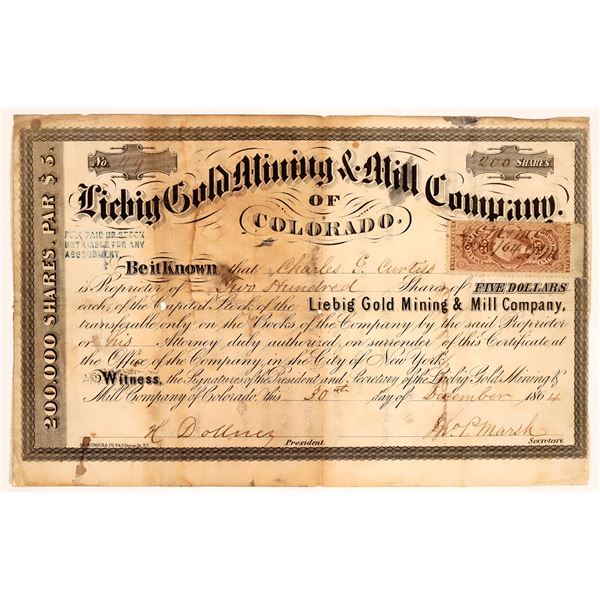 No. 49
200 SHARES
Liebig Gold Mining & Mill Company.
OF
COLORADO.
200.000 SHARES, PAR $5.
FULL PAID UP STOCK
NOT LIABLE FOR ANY
ASSESSMENT
Be it Known that Charles G. Curtiss
is Proprietor of Two Hundred Shares of FIVE DOLLARS
each, of the Capital Stock of the Liebig Gold Mining & Mill Company,
transferable only on the Books of the Company by the said Proprietor
or his Attorney duly authorized, on surrender of this Certificate at
the Office of the Company, in the City of New York.
Witness, the Signatures of the President and Secretary of the Liebig Gold Mining &
Mill Company of Colorado, this 30th day of December 1864
H Dollner President.
P. Marsh Secretary.